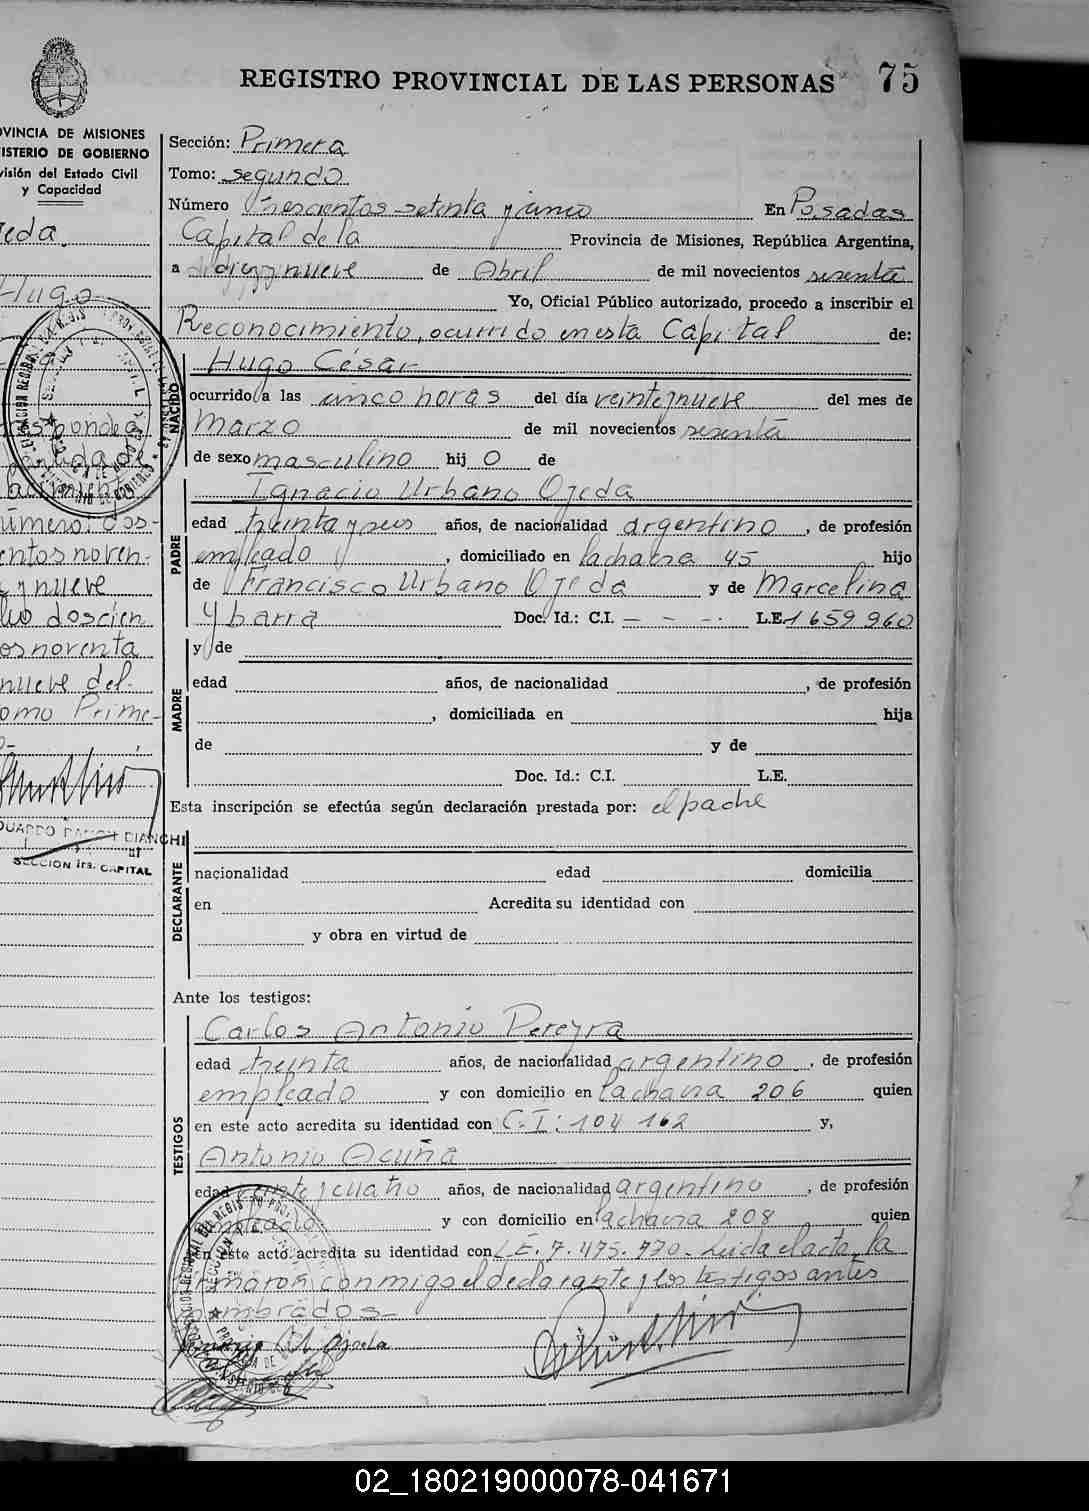 REGISTRO PROVINCIAL DE LAS PERSONAS 75
OVINCIA DE MISIONES
ISTERIO DE GOBIERNO
visión del Estado Civil
y Capacidad
eda.
Hugo
sponde a
número: dos-
entos noven-
y nueve
lio doscien
os noventa
nueve del
omo Prime-
SECCION 1ra. CAPITAL
Sección: Primera
Tomo: segundo
Número Trescientos setenta y cinco En Posadas
Capital de la Provincia de Misiones, República Argentina,
a diez y nueve de Abril de mil novecientos sesenta
Yo, Oficial Público autorizado, procedo a inscribir el
Reconocimiento, ocurrido en esta Capital de:
NACIDO
Hugo César
ocurrido a las cinco horas del día veinte y nueve del mes de
Marzo de mil novecientos sesenta
de sexo masculino hij o de
PADRE
Ignacio Urbano Ojeda
edad treinta y seis años, de nacionalidad argentino, de profesión
empleado, domiciliado en la chacra 45 hijo
de Francisco Urbano Ojeda y de Marcelina
Ybarra Doc. Id.: C.I. - - - . L.E. 1659960
MADRE
y de
edad años, de nacionalidad , de profesión
, domiciliada en hija
de y de
Doc. Id.: C.I. L.E.
Esta inscripción se efectúa según declaración prestada por: el padre
DECLARANTE
nacionalidad edad domicilia
en Acredita su identidad con
y obra en virtud de
Ante los testigos:
TESTIGOS
Carlos Antonio Pereyra
edad treinta años, de nacionalidad argentino, de profesión
empleado y con domicilio en la chacra 206 quien
en este acto acredita su identidad con C.I: 104 162 y,
Antonio Acuña
edad veinte y cuatro años, de nacionalidad argentino, de profesión
empleado y con domicilio en la chacra 208 quien
en este acto acredita su identidad con L.E. 7.475.770. Leida el acta, la
firmaron conmigo el declarante y los testigos antes
nombrados-
02_180219000078-041671